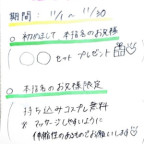 期間：11/1〜11/30
○ 初めまして 本指名のお客様
○○セット プレゼント
○ 本指名のお客様限定
持ち込みコスプレ無料
※マッサージしやすいように
伸縮性のあるものでお願いします